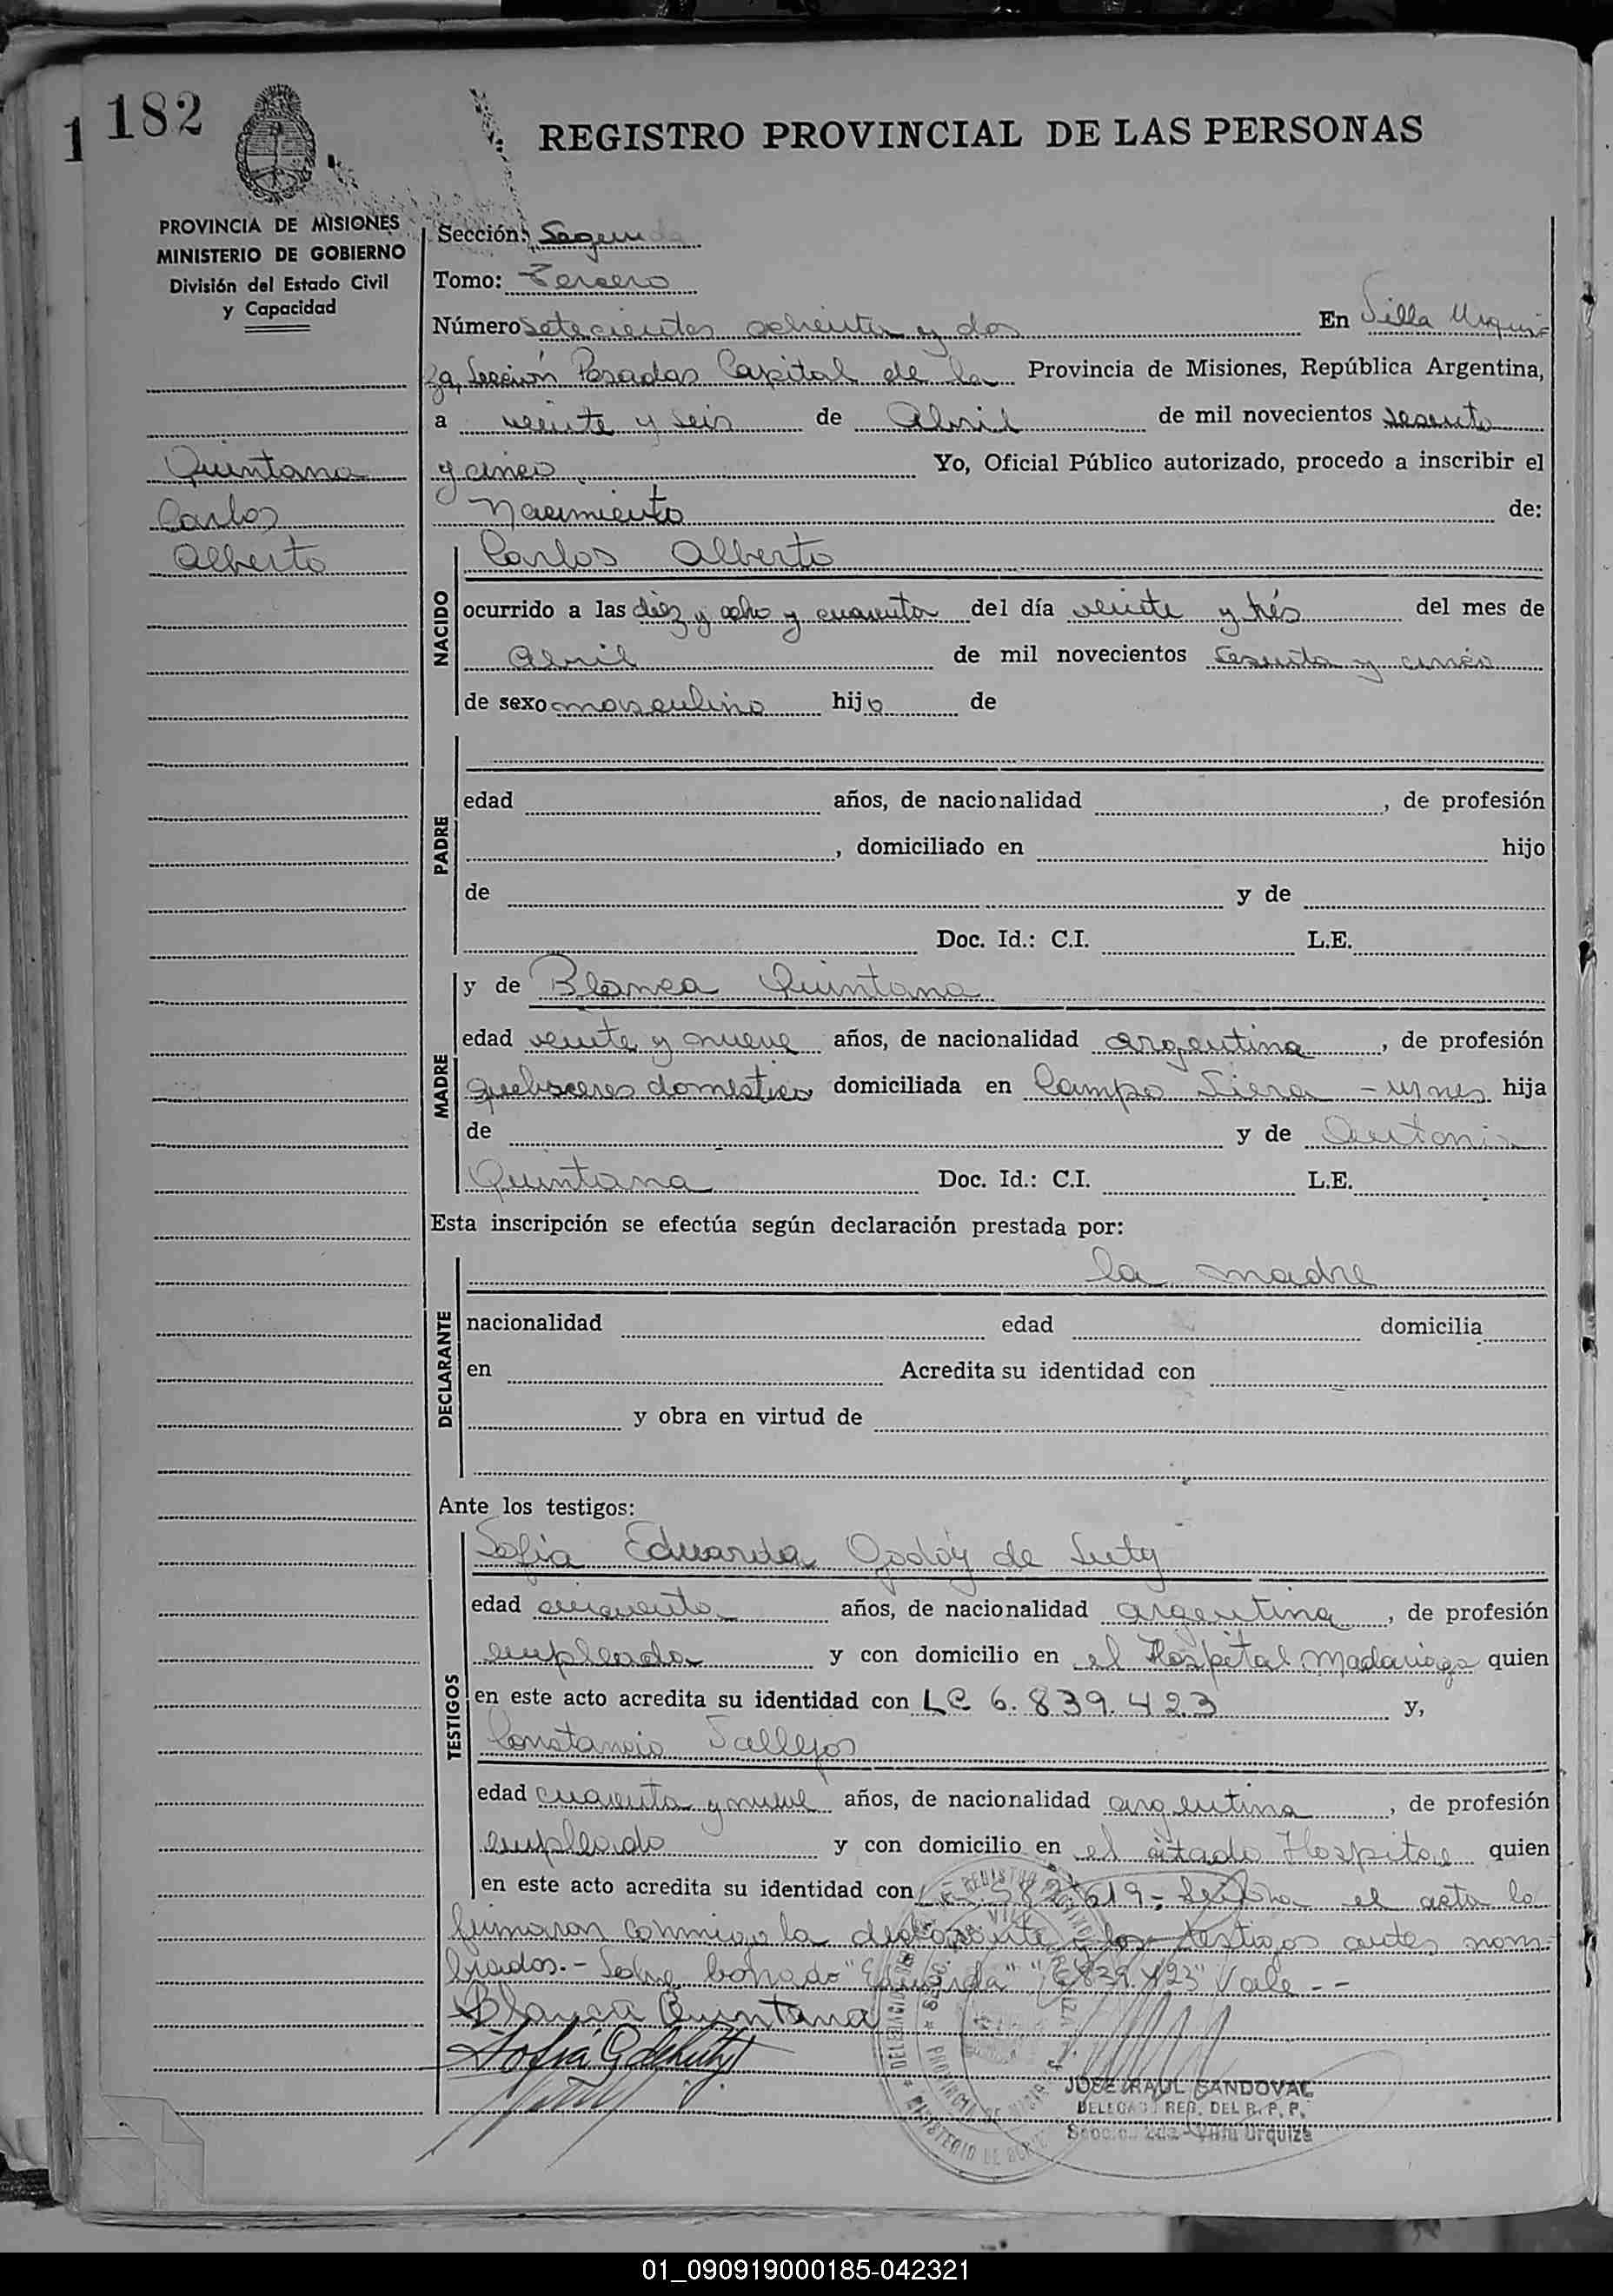 182
1
REGISTRO PROVINCIAL DE LAS PERSONAS
PROVINCIA DE MISIONES
MINISTERIO DE GOBIERNO
División del Estado Civil
y Capacidad
Quintana
Carlos
Alberto
Sección: Segunda
Tomo: Tercero
Número Setecientos ochenta y dos En Villa Urqui
za, Sección Posadas Capital de la Provincia de Misiones, República Argentina,
a veinte y seis de Abril de mil novecientos sesenta
y cinco Yo, Oficial Público autorizado, procedo a inscribir el
Nacimiento de:
NACIDO
Carlos Alberto
ocurrido a las diez y ocho y cuarenta del día veinte y trés del mes de
Abril de mil novecientos sesenta y cinco
de sexo masculino hijo de
PADRE
edad años, de nacionalidad , de profesión
, domiciliado en hijo
de y de
Doc. Id.: C.I. L.E.
MADRE
y de Blanca Quintana
edad veinte y nueve años, de nacionalidad argentina , de profesión
domiciliada en Campo hija
de y de Antonia
Quintana Doc. Id.: C.I. L.E.
Esta inscripción se efectúa según declaración prestada por:
DECLARANTE
la madre
nacionalidad edad domicilia
en Acredita su identidad con
y obra en virtud de
Ante los testigos:
TESTIGOS
Sofia Eduarda Godoy de
edad cincuenta años, de nacionalidad argentina , de profesión
empleada y con domicilio en el Hospital Madariaga quien
en este acto acredita su identidad con LC 6.839.423 y,
Constancio Vallejos
edad cuarenta y nueve años, de nacionalidad argentina , de profesión
empleado y con domicilio en el citado Hospital quien
en este acto acredita su identidad con el acta la
firmaron conmigo la declarante y los testigos antes nom
brados.- Sobre borrado "Eduarda" "6839.423" Vale --
Blanca Quintana
Sofia G de
JOSE RAUL SANDOVAL
DELEGADO REG. DEL R. P. P.
Sección 2da - Villa Urquiza
01_090919000185-042321